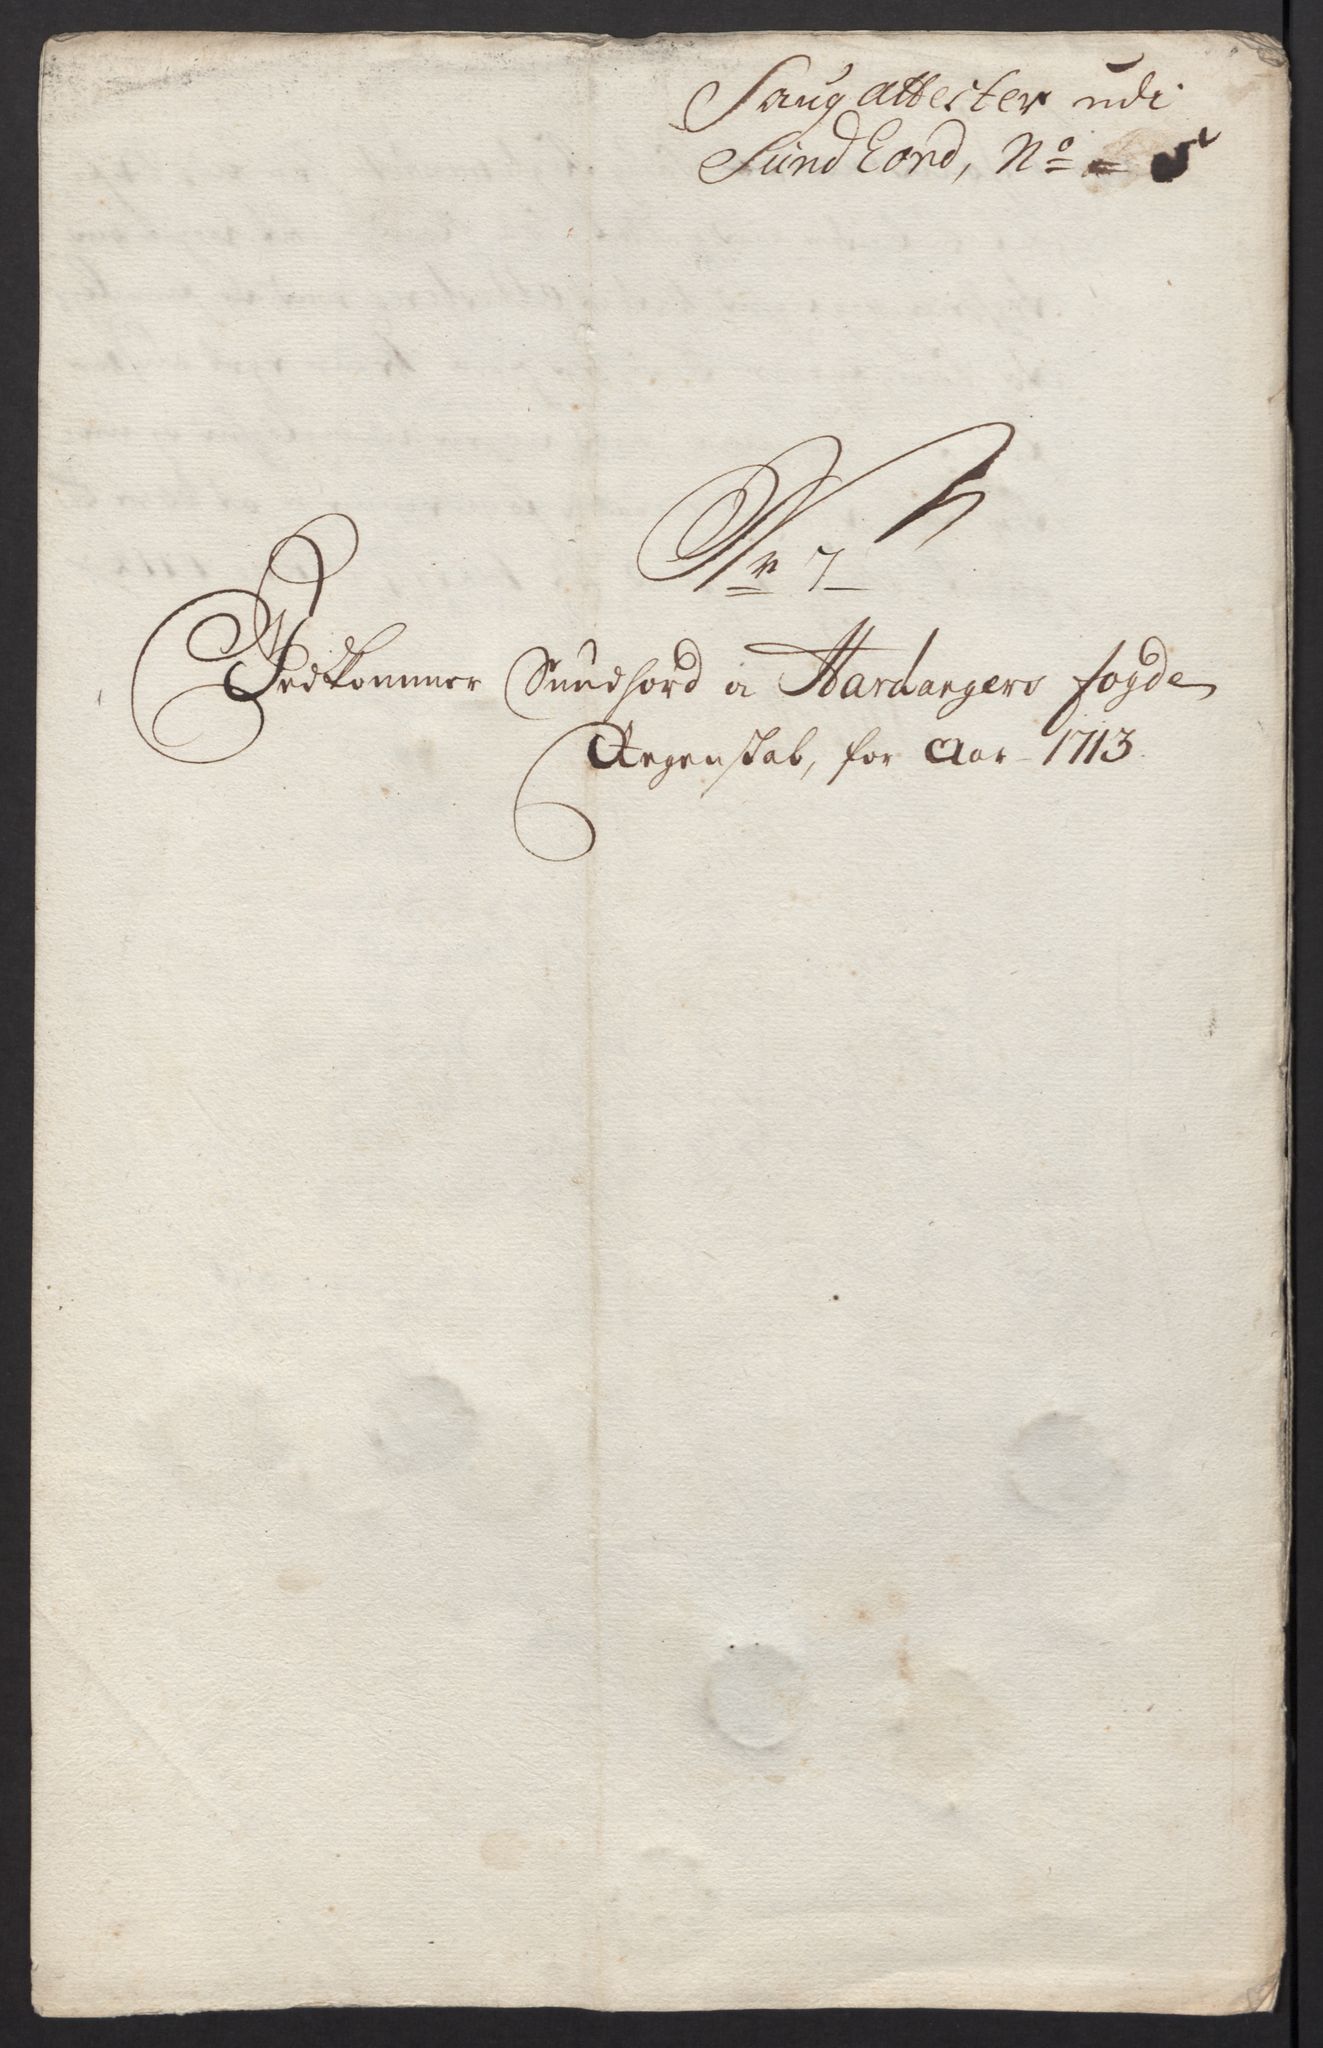 Saug attester udi
Sundhord, No 5
Nr 7
Vedkommer Sundhord oc Hardangers fogde
Regenskab, for Aar 1713